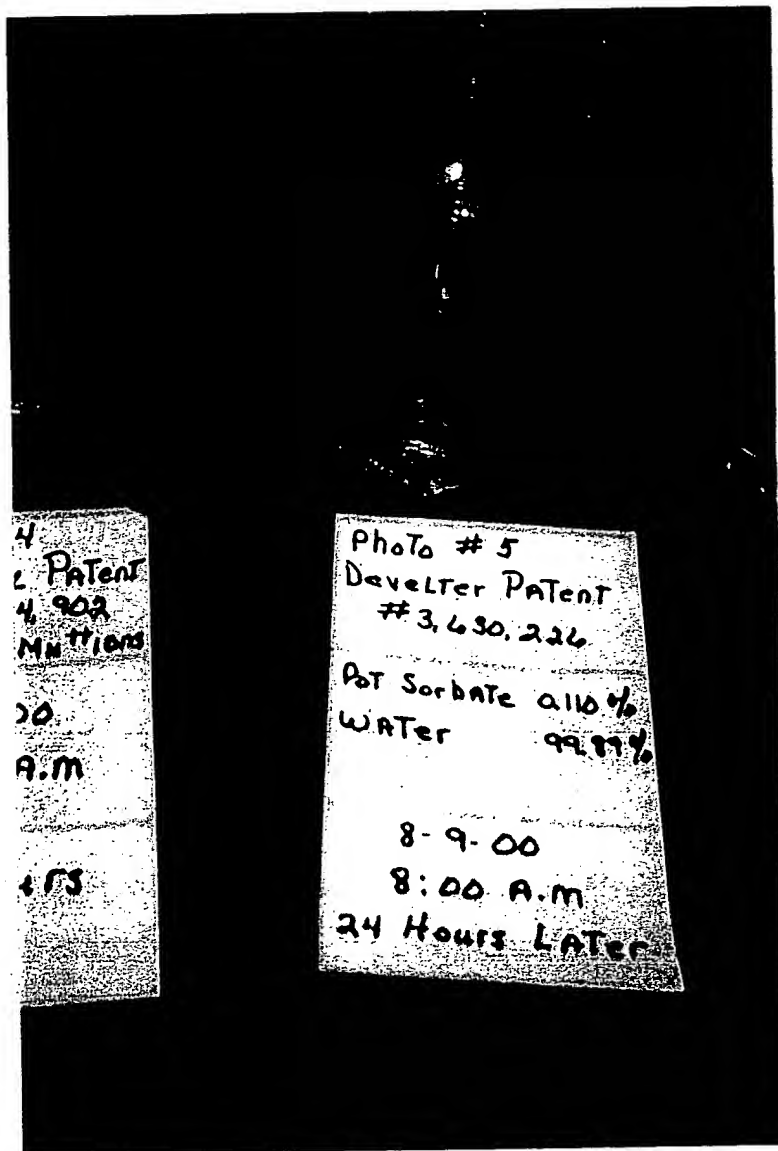 4
PATenT
4,902
00
A.m
rs
PhoTo # 5
DeveLTer PATenT
#3,630,226
PoT SorbATe 0.110 %
WATer 99.89%
8-9-00
8:00 A.m
24 Hours LATer